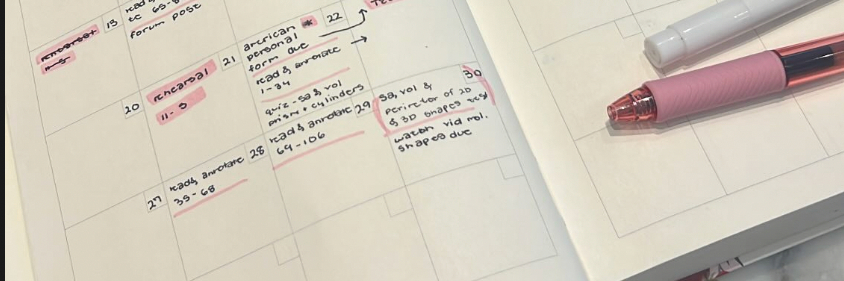 rehearsal
11-5
13
forum post
20
rehearsal
11-5
21
american *
personal
form due
read & annotate
1-34
quiz-sa & vol
prism + cylinders
22
27
read & annotate
35-68
28
read & annotate
69-106
29
sa, vol &
perimeter of 2D
& 3D shapes test
watch vid mol.
shapes due
30